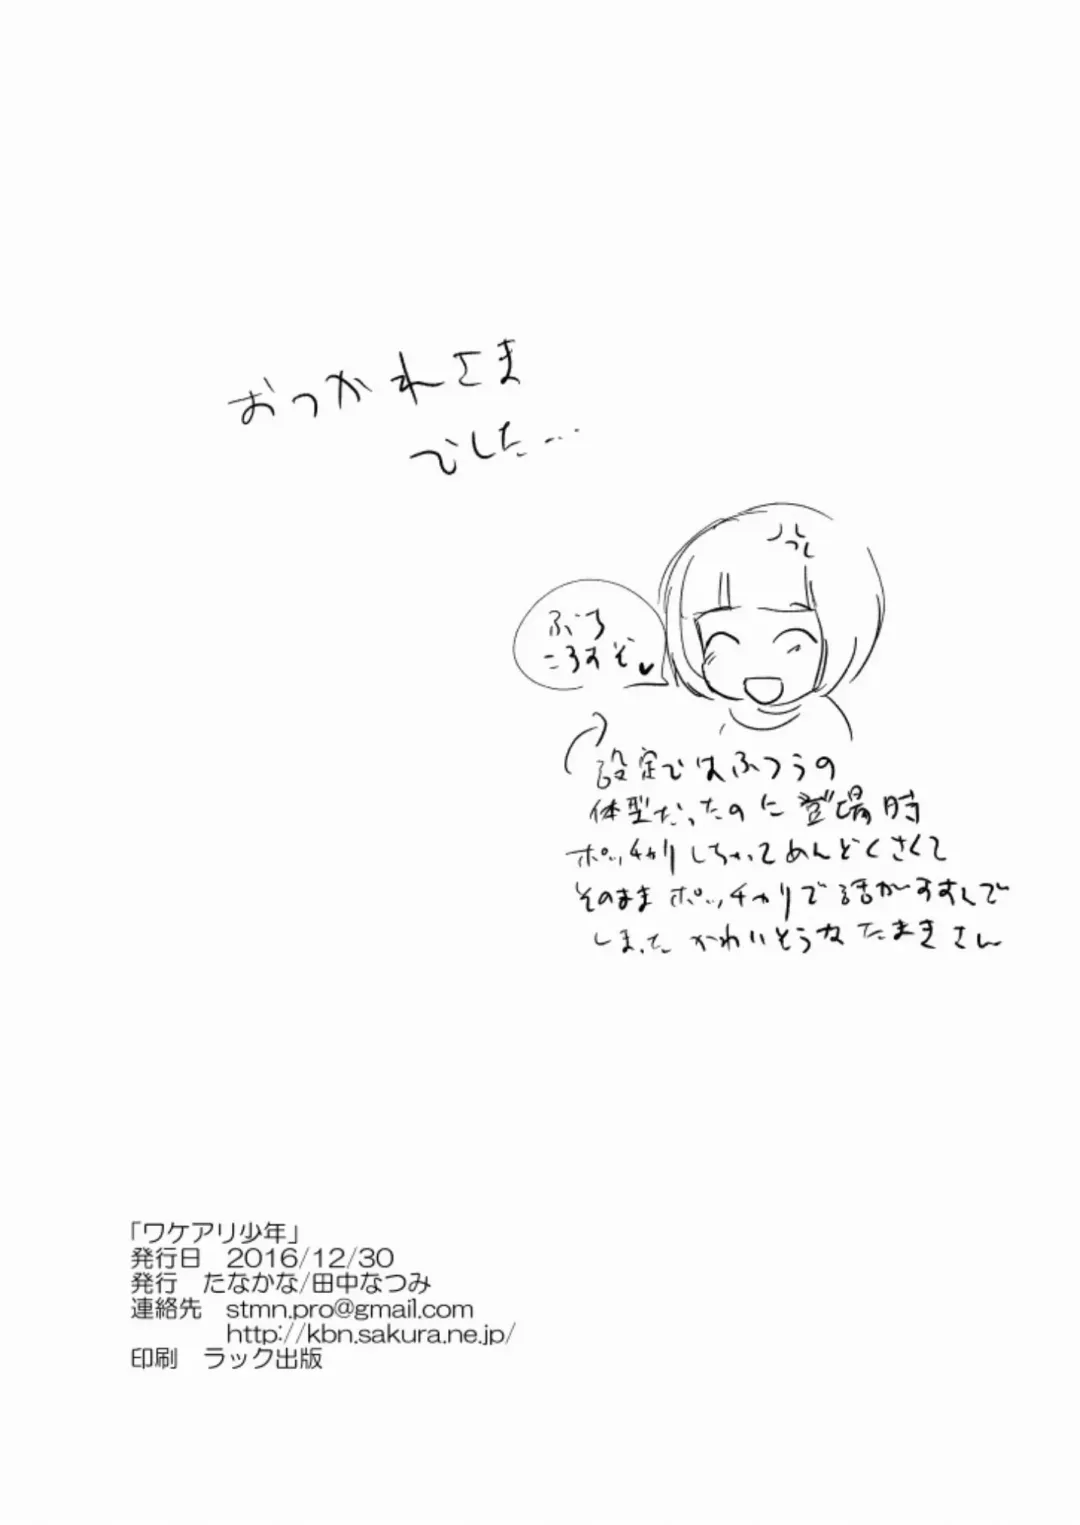 おつかれさま
でした…
ぶち
ころすぞ♥
設定ではふつうの
体型だったのに登場時
ポッチャリしちゃってめんどくさくて
そのままポッチャリで話がすすんで
しまったかわいそうなたまきさん
「ワケアリ少年」
発行日　2016/12/30
発行　たなかな/田中なつみ
連絡先　stmn.pro@gmail.com
http://kbn.sakura.ne.jp/
印刷　ラック出版